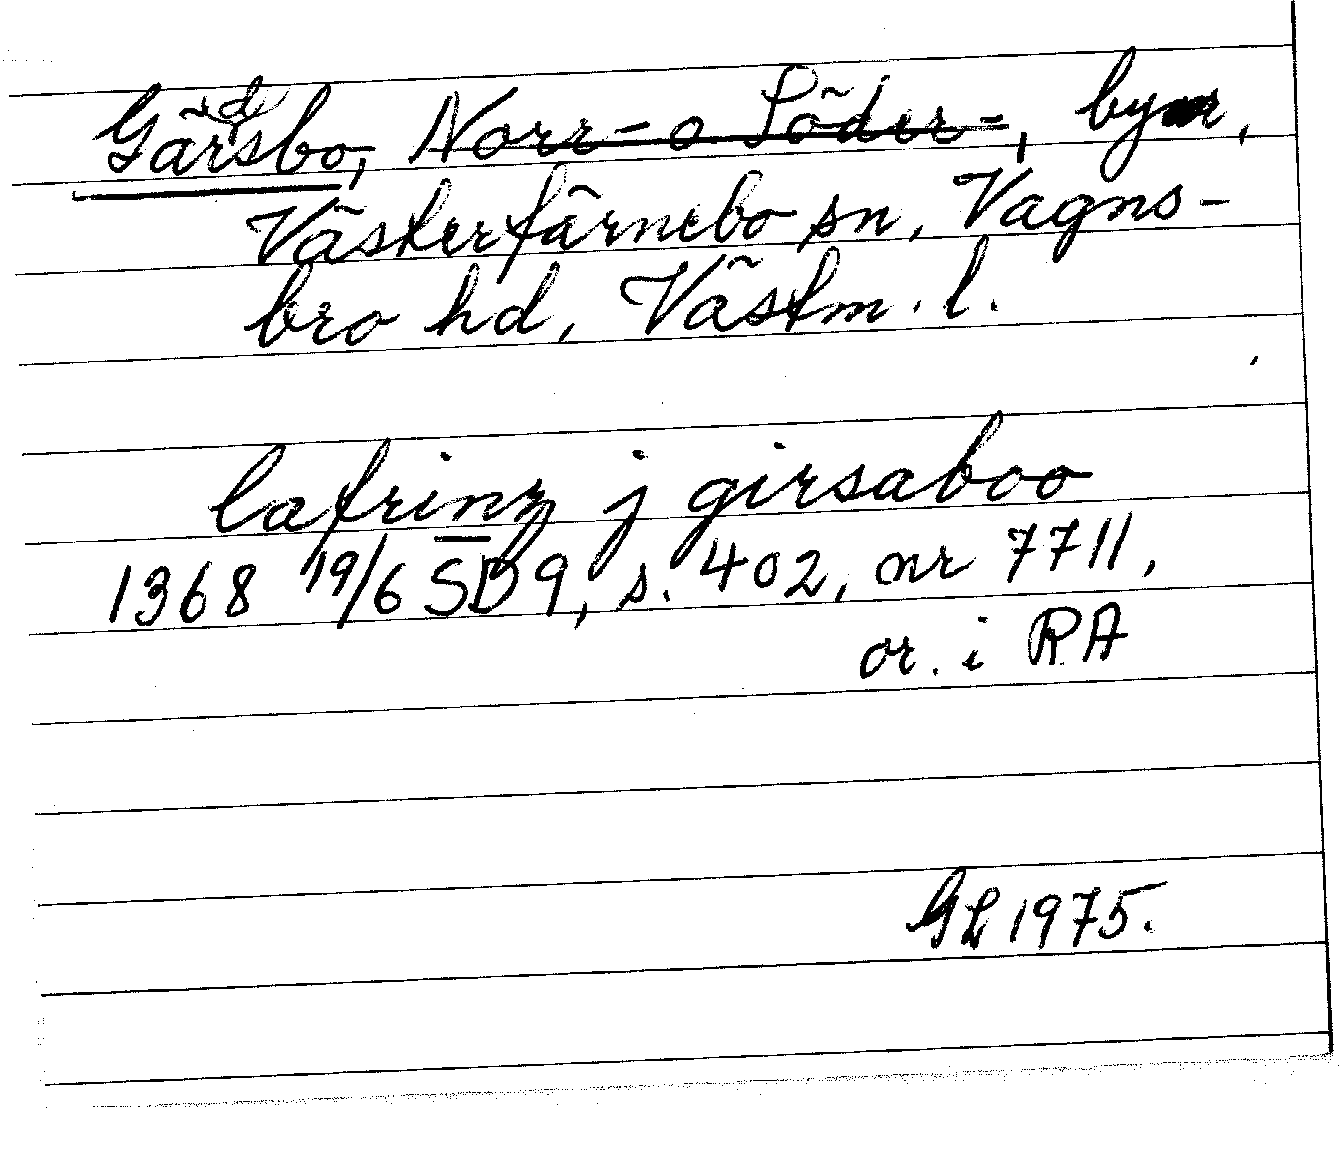 Gärdsbo, Norr- o. Söder-, byar,
Västerfärnebo sn, Vagns-
bro hd, Västm. l.
lafrinz j girsaboo
1368 19/6 SD 9, s. 402, nr 7711,
or. i RA
GL 1975.